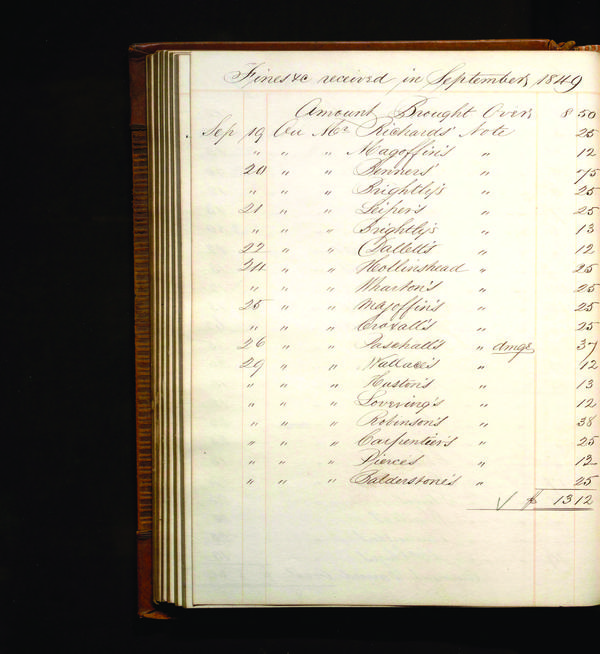 Fines &c received in September, 1849
Amount Brought Over, 8 50
Sep 19 On Mr Richards' Note 25
" " " Magoffin's " 12
20 " " Benners' " 75
" " " Brightly's " 25
21 " " Leiper's " 25
" " " Brightly's " 13
22 " " Dallett's " 12
24 " " Hollinshead " 25
" " " Wharton's " 25
25 " " Magoffin's " 25
" " " Croxall's " 25
26 " " Paschall's " dmge 37
29 " " Wallace's " 12
" " " Huston's " 13
" " " Lovering's " 12
" " " Robinson's " 38
" " " Carpentier's " 25
" " " Pierce's " 13
" " " Balderstone's " 25
√ $ 13 12